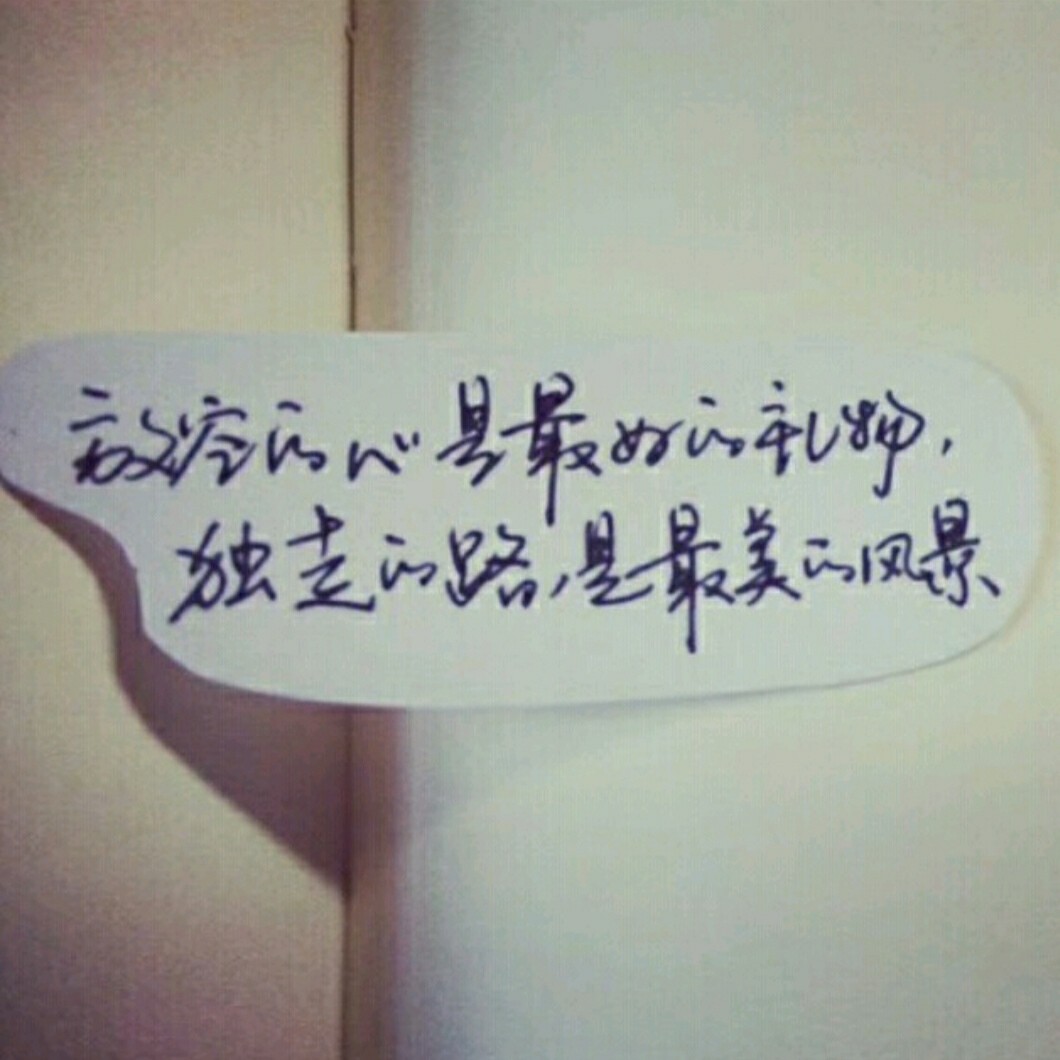 放空的心是最好的礼物,
独走的路,是最美的风景、